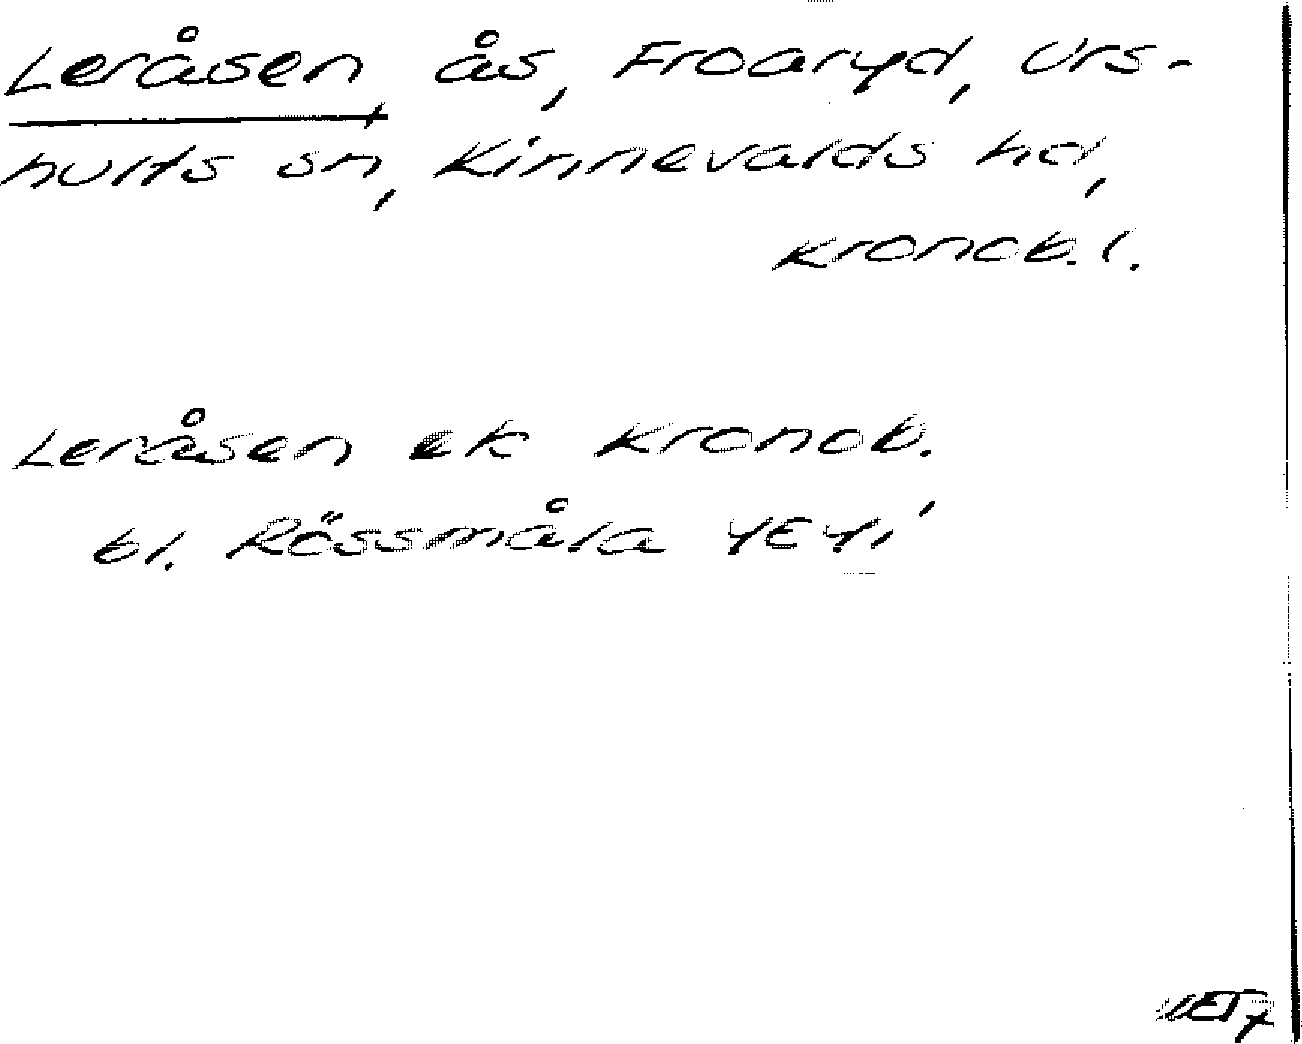 Leråsen, ås, Froaryd, Urs-
hults sn, Kinnevalds hd,
Kronob. l.
Leråsen ek Kronob.
bl. Rössmåla 4E4i